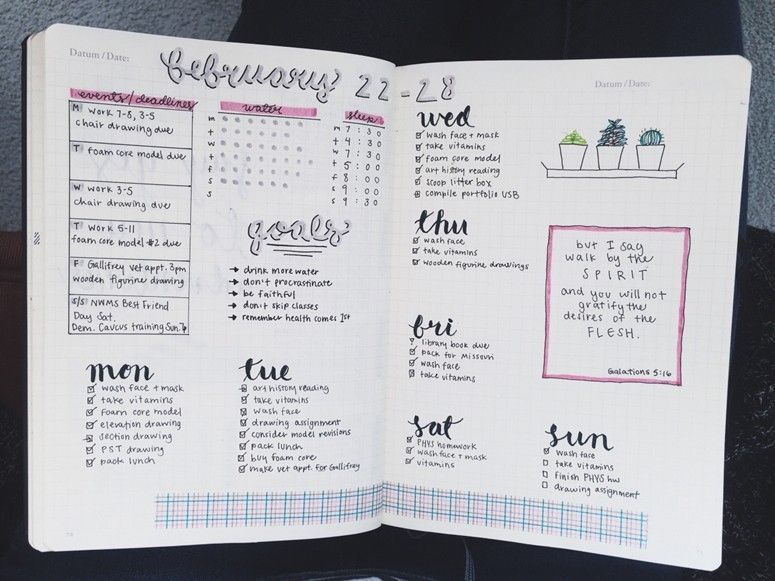 Datum / Date:
february 22-28
events/deadlines
M work 7-8, 3-5
chair drawing due
T foam core model due
W work 3-5
chair drawing due
T work 5-11
foam core model #2 due
F Gallifrey vet appt. 3pm
wooden figurine drawing
S/S NWMS Best Friend
Day Sat.
Dem. Caucus training Sun.
water
m
t
w
t
f
s
s
sleep
m 7:30
t 4:30
w 7:30
t 5:30
f 8:00
s 9:00
s 9:30
goals
→ drink more water
→ don't procrastinate
→ be faithful
→ don't skip classes
→ remember health comes 1st
mon
wash face + mask
take vitamins
foam core model
elevation drawing
section drawing
PST drawing
pack lunch
tue
art history reading
take vitamins
wash face
drawing assignment
consider model revisions
pack lunch
buy foam core
make vet appt. for Gallifrey
Datum / Date:
wed
wash face + mask
take vitamins
foam core model
art history reading
scoop litter box
compile portfolio USB
thu
wash face
take vitamins
wooden figurine drawings
fri
library book due
pack for Missouri
wash face
take vitamins
sat
PHYS homework
wash face + mask
vitamins
but I say
walk by the
SPIRIT
and you will not
gratify the
desires of the
FLESH.
Galations 5:16
sun
wash face
take vitamins
finish PHYS hw
drawing assignment